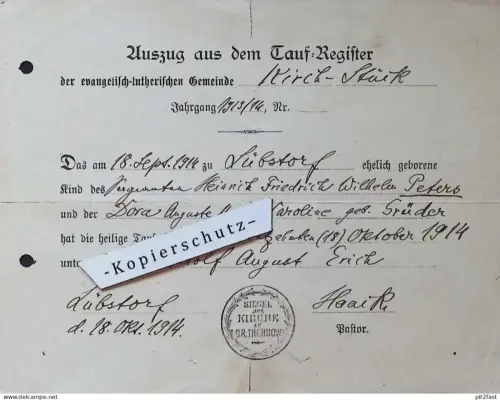 Auszug aus dem Tauf-Register
der evangelisch-lutherischen Gemeinde Kirch-Stück
Jahrgang 1913/14, Nr.
Das am 18. Sept. 1914 zu Lübstorf ehelich geborene
Kind des Sergeanten Heinrich Friedrich Wilhelm Peters
und der Dora Auguste Karoline geb. Grüder
hat die heilige Taufe (18) Oktober 1914
August Erich
-Kopierschutz-
Lübstorf
d. 18. Okt. 1914.
Haack
Pastor.
SIEGEL
DER
KIRCHE
GR. TREBBOW
pit2fast